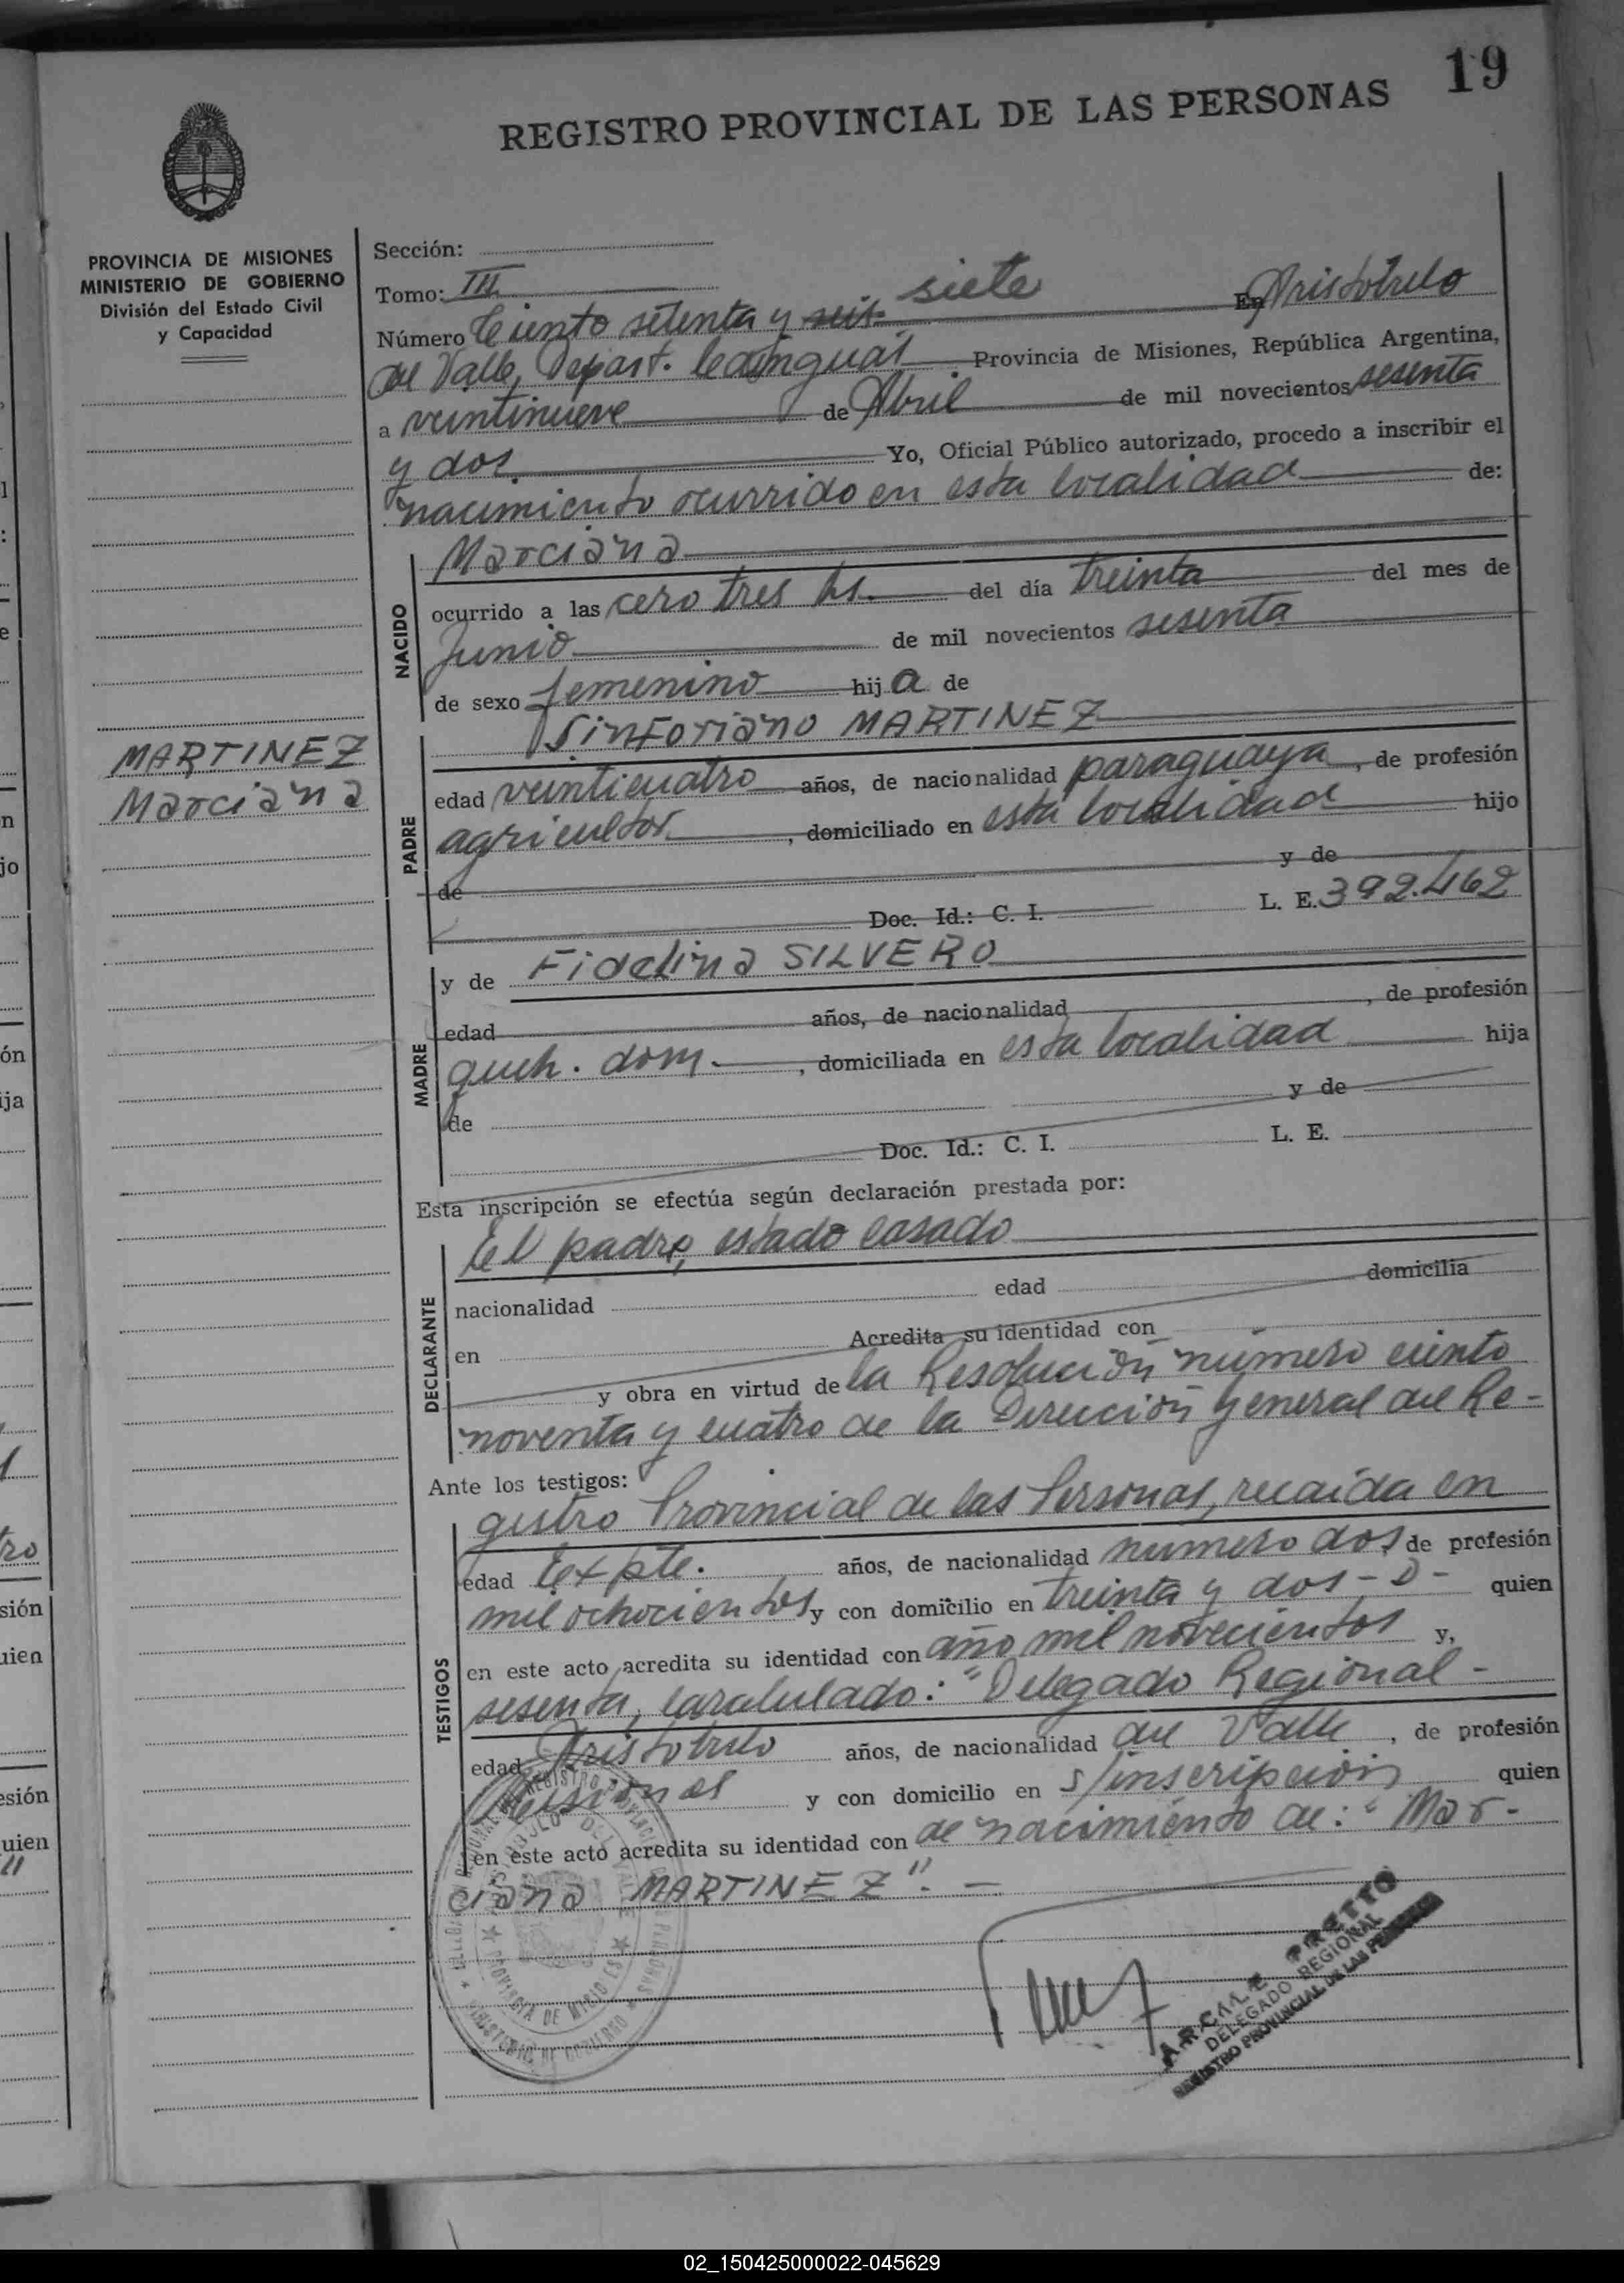 19
REGISTRO PROVINCIAL DE LAS PERSONAS
PROVINCIA DE MISIONES
MINISTERIO DE GOBIERNO
División del Estado Civil
y Capacidad
Sección:
Tomo: III
Número Ciento setenta y seis siete En Aristóbulo
del Valle, Depart. Cainguás Provincia de Misiones, República Argentina,
a veintinueve de Abril de mil novecientos sesenta
y dos Yo, Oficial Público autorizado, procedo a inscribir el
nacimiento ocurrido en esta localidad de:
NACIDO
Marciana
ocurrido a las cero tres hs. del día treinta del mes de
Junio de mil novecientos sesenta
de sexo femenino hija de
MARTINEZ
Marciana
PADRE
Sinforiano MARTINEZ
edad veinticuatro años, de nacionalidad paraguaya, de profesión
agricultor, domiciliado en esta localidad hijo
de y de
Doc. Id.: C. I. L. E. 392.462
MADRE
y de Fidelina SILVERO
edad años, de nacionalidad, de profesión
queh. dom., domiciliada en esta localidad hija
de y de
Doc. Id.: C. I. L. E.
Esta inscripción se efectúa según declaración prestada por:
DECLARANTE
El padre, estado casado
nacionalidad edad domicilia
en Acredita su identidad con
y obra en virtud de la Resolución número ciento
noventa y cuatro de la Dirección General del Re-
Ante los testigos:
TESTIGOS
gistro Provincial de las Personas, recaída en
edad Expte. años, de nacionalidad número dos, de profesión
mil ochocientos y con domicilio en treinta y dos - D - quien
en este acto acredita su identidad con año mil novecientos y,
sesenta, caratulado: "Delegado Regional -
edad Aristóbulo años, de nacionalidad del Valle, de profesión
Misiones y con domicilio en s/inscripción quien
en este acto acredita su identidad con de nacimiento de: "Mar-
ciana MARTINEZ". -
PROVINCIA DE MISIONES
MINISTERIO DE GOBIERNO
PRETTO
DELEGADO REGIONAL
REGISTRO PROVINCIAL DE LAS PERSONAS
02_150425000022-045629